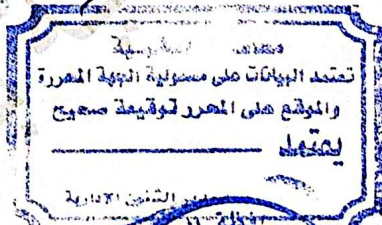 تعتمد البيانات على مسئولية الجهة المحررة
والموقع على المحرر توقيعة صحيح
يعتمد
مدير الشئون الادارية